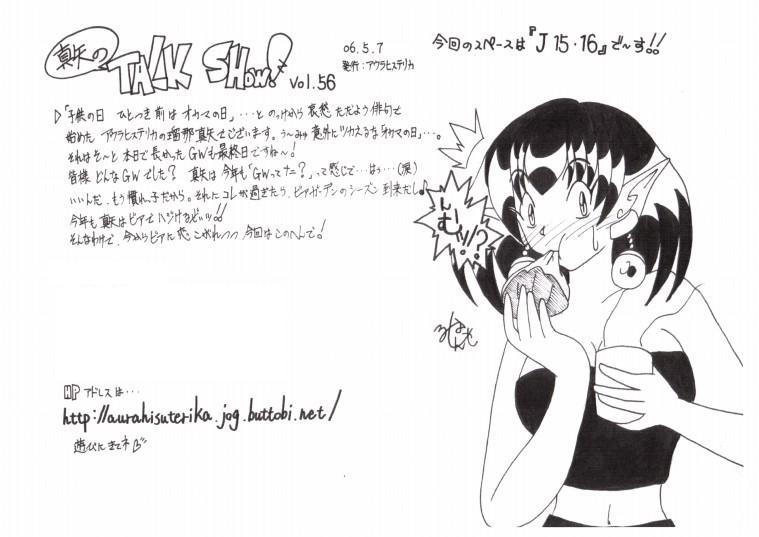 真矢の TALK SHOW! vol.56
06.5.7
発行:アウラヒステリカ
今回のスペースは『J 15・16』で〜す!!
▷「子供の日 ひとつき前は オカマの日」…と のっけから哀愁ただよう俳句で
始めた アウラヒステリカの瑠那真矢でございます。う〜みゅ 意外にツカえるな「オカマの日」…。
それはそ〜と 本日で長かったGWも最終日ですね〜!
皆様 どんなGWでした? 真矢は今年も「GWってナニ?」って感じで…はぅ…(涙)
いいんだ、もう慣れっ子だから。それにコレが過ぎたら、ビアガーデンのシーズン到来だし♪
今年も真矢はビアでハジけるどいッ!!
そんなわけで、今からビアに恋こがれつつ、今回はこのへんで!
んーむッ!?
るなまや
HP アドレスは…
http://aurahisuterika.jog.buttobi.net/
遊びにきてネ